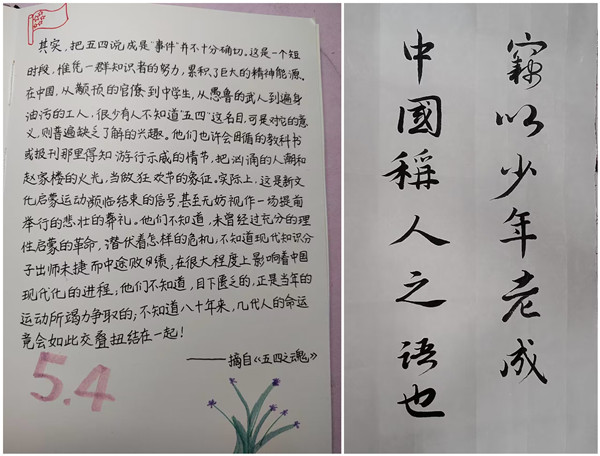 其实，把五四说成是"事件"并不十分确切。这是一个短
时段，惟凭一群知识者的努力，累积了巨大的精神能源。
在中国，从颟顸的官僚到中学生，从愚鲁的武人到遍身
油污的工人，很少有人不知道"五四"这名目，可是对它的意
义，则普遍缺乏了解的兴趣。他们也许会因循的教科书
或报刊那里得知游行示威的情节，把汹涌的人潮和
赵家楼的火光，当做狂欢节的象征。实际上，这是新文
化启蒙运动濒临结束的信号，甚至无妨视作一场提前
举行的悲壮的葬礼。他们不知道，未曾经过充分的理
性启蒙的革命，潜伏着怎样的危机；不知道现代知识分
子出师未捷而中途败绩，在很大程度上影响着中国
现代化的进程；他们不知道，目下匮乏的，正是当年的
运动所竭力争取的；不知道八十年来，几代人的命运
竟会如此交叠扭结在一起！
——摘自《五四之魂》
5.4
窃以少年老成
中國稱人之语也